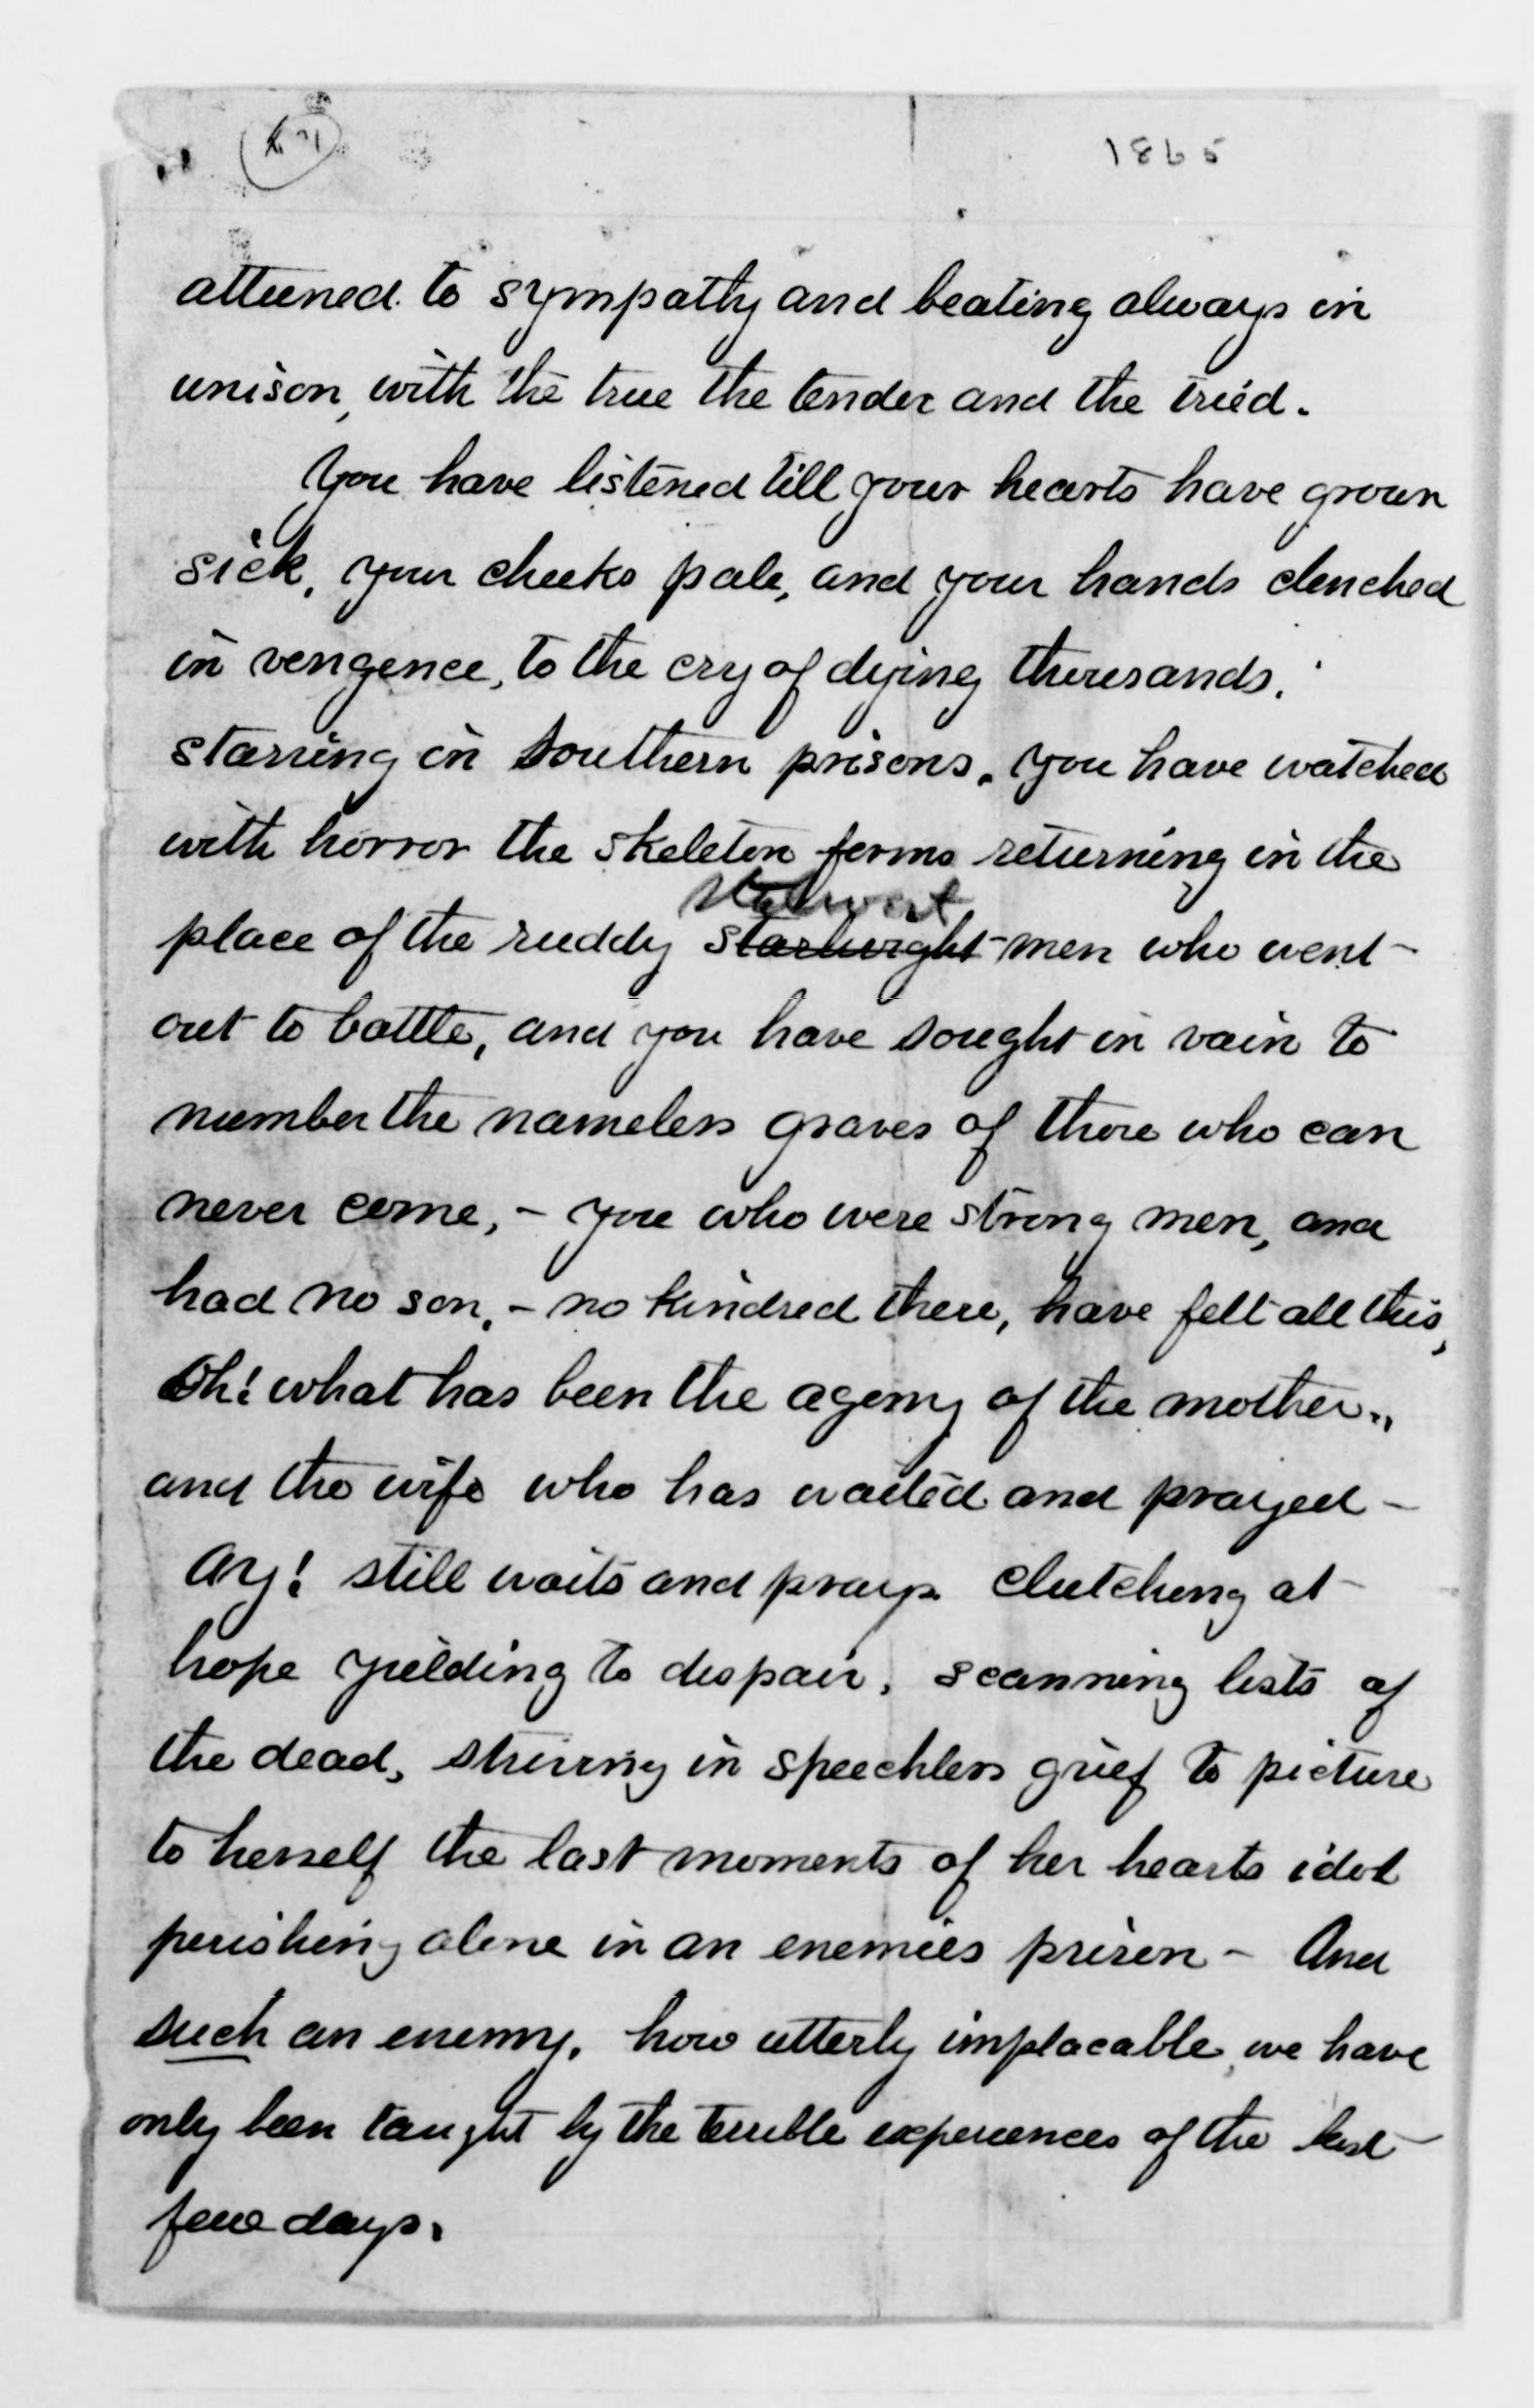 1865
attuned to sympathy and beating always in
unison, with the true the tender and the tried.
You have listened till your hearts have grown
sick, your cheeks pale, and your hands clenched
in vengence, to the cry of dying thousands,
starving in Southern prisons. You have watched
with horror the skeleton forms returning in the
stalwart
place of the ruddy starlwight men who went
out to battle, and you have sought in vain to
number the nameless graves of those who can
never come, - you who were strong men, and
had no son, - no kindred there, have felt all this,
Oh! what has been the agony of the mother,,
and the wife who has waited and prayed -
Ay! still waits and prays clutching at
hope yielding to dispair, scanning lists of
the dead, striving in speechless grief to picture
to herself the last moments of her hearts idol
perishing alone in an enemies prison - And
such an enemy, how utterly implacable, we have
only been taught by the terrible experiences of the last
few days.